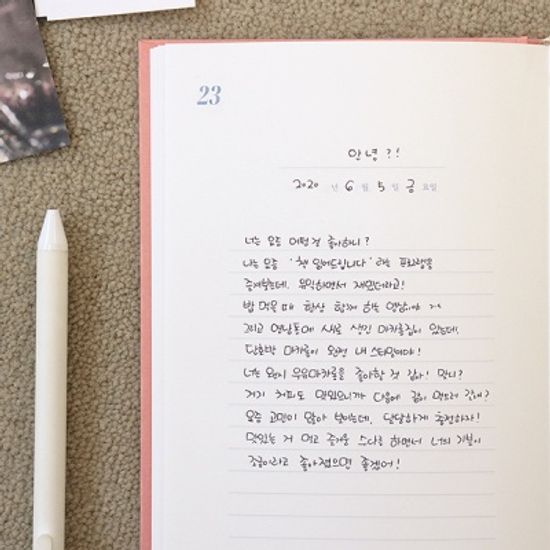 23
안녕?!
2020 년 6 월 5 일 금 요일
너는 요즘 어떤 걸 좋아하니?
나는 요즘 '책 읽어드립니다' 라는 프로그램을
즐겨봤는데, 유익하면서 재밌더라고!
밥 먹을 때 항상 함께 하는 영상이야 ㅋㅋ
그리고 연남동에 새로 생긴 마카롱집이 있는데,
단호박 마카롱이 완전 내 스타일이야!
너는 왠지 우유마카롱을 좋아할 것 같아! 맞니?
거기 커피도 맛있으니까 다음에 같이 먹으러 갈래?
요즘 고민이 많아 보이는데, 달달하게 충전하자!
맛있는 거 먹고 즐거운 수다를 하면서 너의 기분이
조금이라도 좋아졌으면 좋겠어!